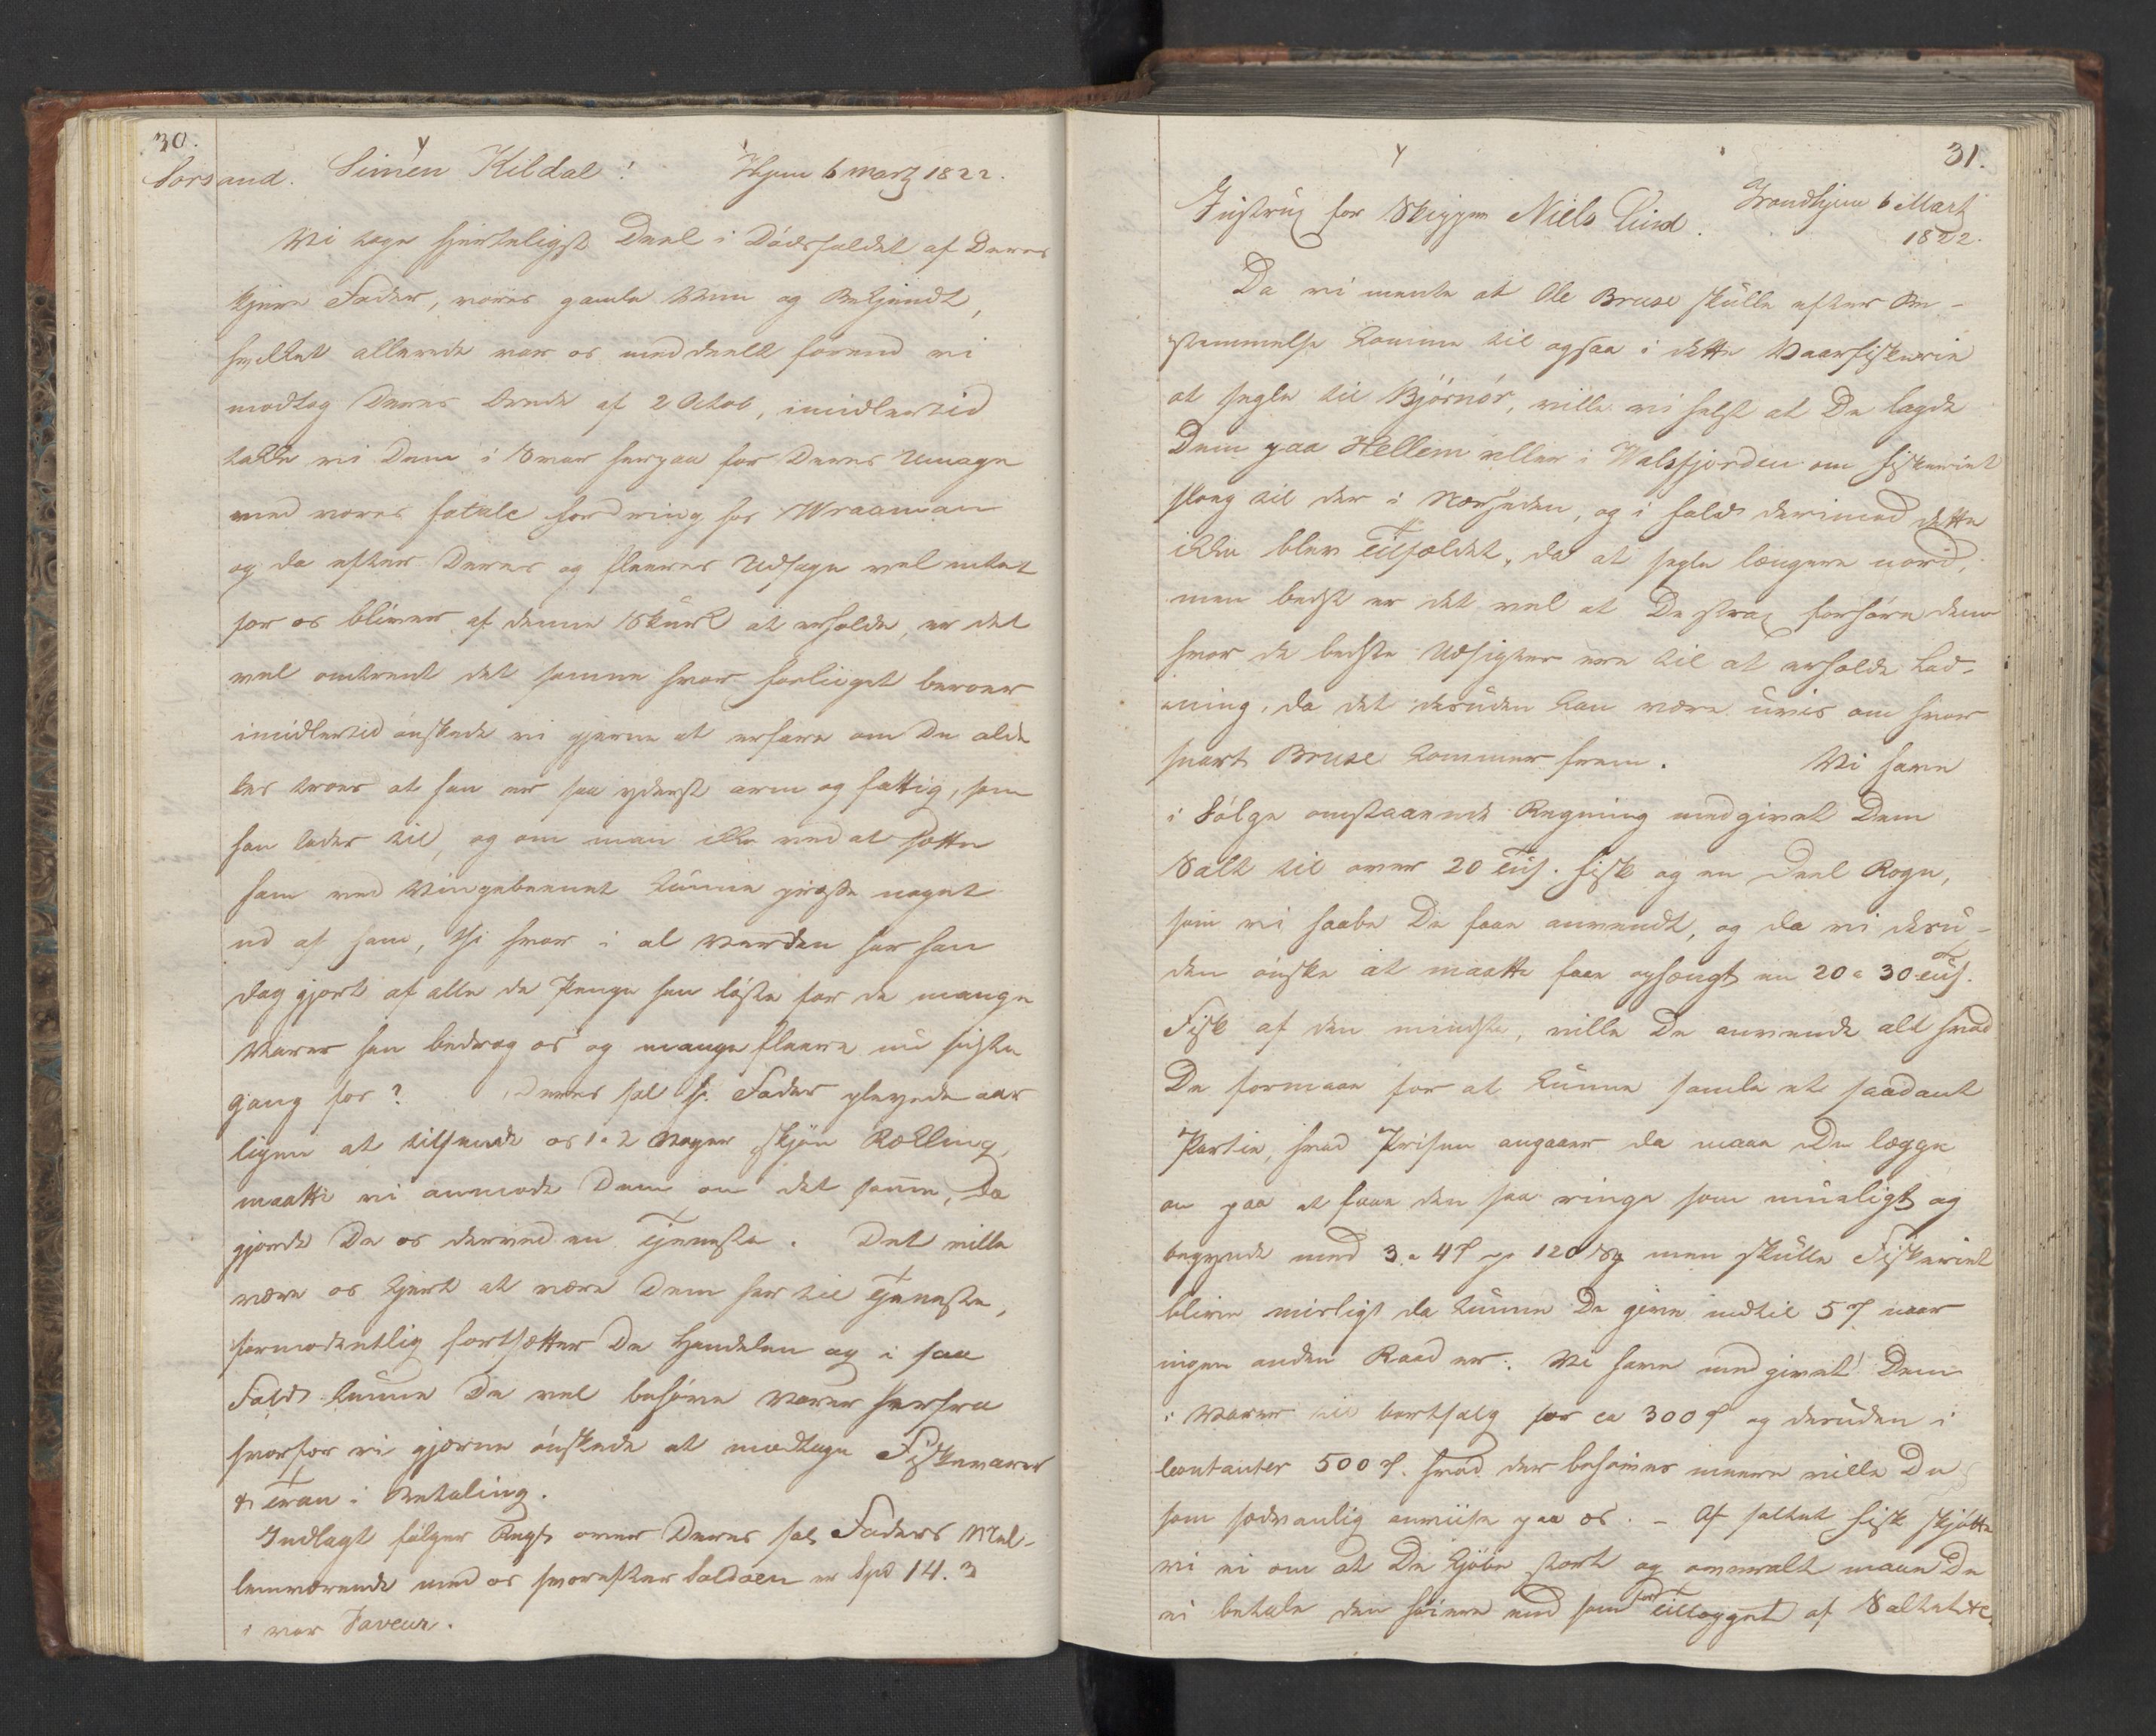 30.
Sorsand. Simen Kildal! Thjem 6 Marz 1822.
Vi tage hierteligst Deel i Dødsfaldet af Deres
kjere Fader, vores gamle Ven og Bekjendt,
hvilket allerede var os meddeelt førend vi
modtog Deres brede af 2 Octob, imidlertid
takke vi Dem i Svar herpaa for Deres Umage
med vores fatale fordring hos Wraaman
og da efter Deres og fleeres Udsagn vel intet
for os bliver af denne Skurk at erholde, er det
vel omtrent det samme hvor forliiget beroer
imidlertid ønskede vi gjerne at erfare om De alde
les troer at han er saa yderst arm og fattig, som
han lader til, og om man ikke ved at sætte
ham ved Vingebeenet kunne presse noget
ud af ham, thi hvor i al Verden har han
dog gjort af alle de Penge han løste for de mange
Varer han bedrog os og mange fleere nu sidste
gang for? Deres sal H. Fader pleyede aar
ligen at tilsende os 1 a 2 Voger skjøn Rækling,
maatte vi anmode Dem om det samme, da
gjorde De os derved en Tjeneste. Det ville
være os kjert at være Dem her til Tjeneste,
formodentlig fortsætter De Handelen og i saa
Fald kunne De vel behøve Varer herfra
hvorfor vi gjerne ønskede at modtage Fiskevarer
& Tran i Betaling.
Indlagt følger Regn over Deres sal Faders Mel-
lemværende med os hvorefter Saldoen er Spd 14. 3
i vor Faveur.
31.
Instrux for Skipper Niels Lund. Trondhjem 6 Mart
1822.
Da vi mente at Ole Bruse skulle efter Be-
stemmelse komme til ogsaa i dette Vaarfiskerie
at segle til Bjørnør, ville vi helst at De lagde
Dem paa Hellem eller i Walsfjorden om fiskeriet
slog til der i Nærheden, og i fald derimod dette
ikke blev Tilfældet, da at segle længere nord,
men bedst er det vel at De strax forhøre dem
hvor de bedste Udsigter ere til at erholde Lad-
ning, da det desuden kan være uvis om hvor
snart Bruse kommer frem. Vi have
i Følge omstaaende Regning medgivet Dem
Salt til over 20 Tus. fisk og en Deel Rogn,
som vi haabe De faae anvendt, og da vi desu-
den ønske at maatte faae ophængt en 20 a 30 Tus.
Fisk af den mindste, ville De anvende alt hvad
De formaae for at kunne samle et saadant
Partie, hvad Prisen angaaer da maae De lægge
an paa at faae den saa ringe som mueligt og
begynde med 3 a 4 pr 120 men skulle Fiskeriet
blive misligt da kunne De give indtil 5 naar
ingen anden Raad er. Vi have medgivet Dem
i Varer til bortsalg for ca 300 og desuden i
Contanter 500. hvad der behøves meere ville De
som sædvanlig anviise paa os. - Af saltet fisk skjøtte
vi ei om at De kjøbe stort og overalt maae De
ei betale den høiere end som for Tillægget af Saltet &c.